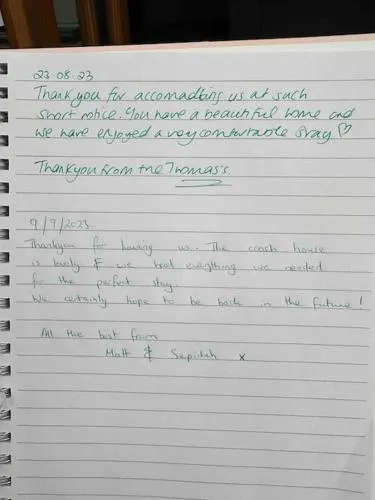 23.08.23
Thankyou for accomadting us at such
short notice. You have a beautiful home and
we have enjoyed a very comfortable stay ♡
Thankyou from the Thomas's.
9/9/2023
Thankyou for having us. The coach house
is lovely & we had everything we needed
for the perfect stay.
We certainly hope to be back in the future!
All the best from
Matt & Sepideh x